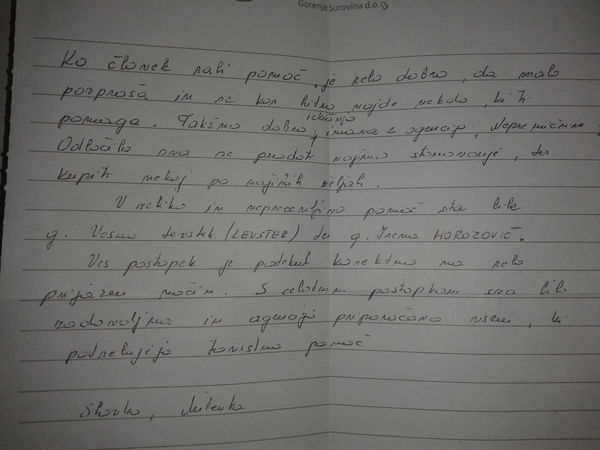 Gorenje Surovina d.o.o.
Ko človek rabi pomoč, je zelo dobro, da malo
povpraša in se kar hitro najde nekdo, ki ti
pomaga. Takšno dobro izkušnjo imamo z agencijo Nepremičnine
Odločile smo se prodati najino stanovanje, ter
kupiti nekaj po najinih željah.
V veliko in neprecenljivo pomoč sta bile
g. Vesna Levstek (LEVSTEK) ter g. Irena HOROZOVIČ.
Ves postopek je potekal korektno na zelo
prijazen način. S celotnim postopkom smo bile
zadovoljne in agencijo priporočamo vsem, ki
potrebujejo tovrstno pomoč
Slavko, Milenka